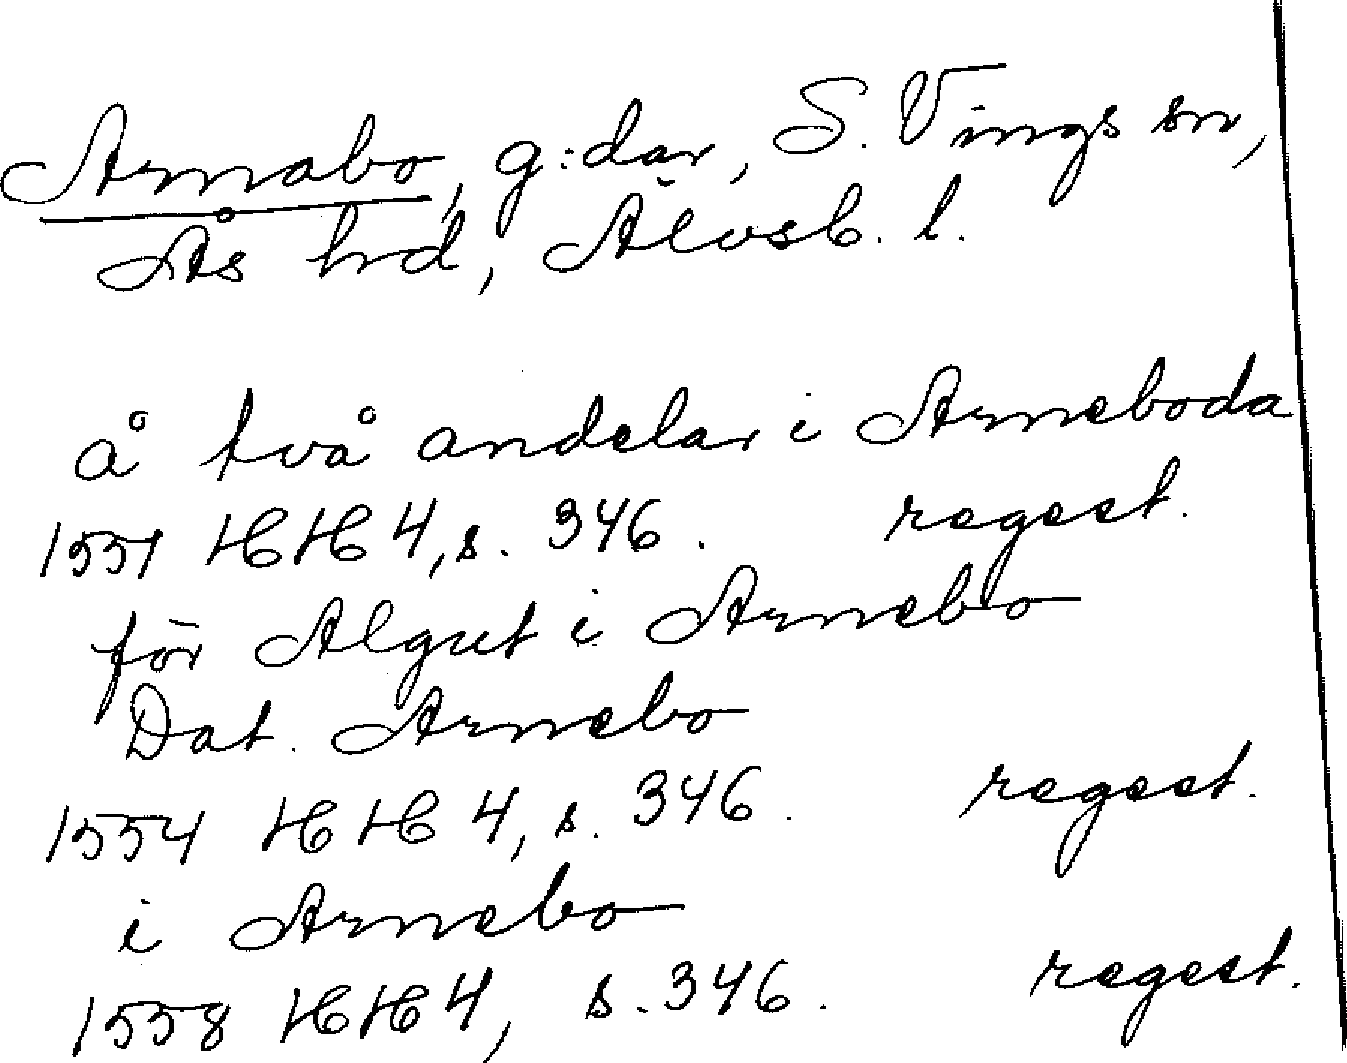 Arnabo, g:dar, S. Vings sn,
Ås hd, Älvsb. l.
å två andelar i Arneboda
1551 HH 4, s. 346. regest.
för Algut i Arnebo
Dat. Arnebo
1554 HH 4, s. 346. regest.
i Arnebo
1558 HH 4, s. 346. regest.